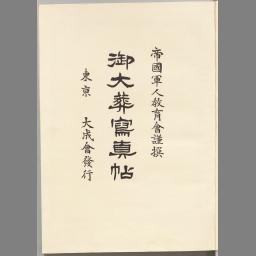 帝國軍人教育會謹撰
御大葬寫真帖
東京　大成會發行